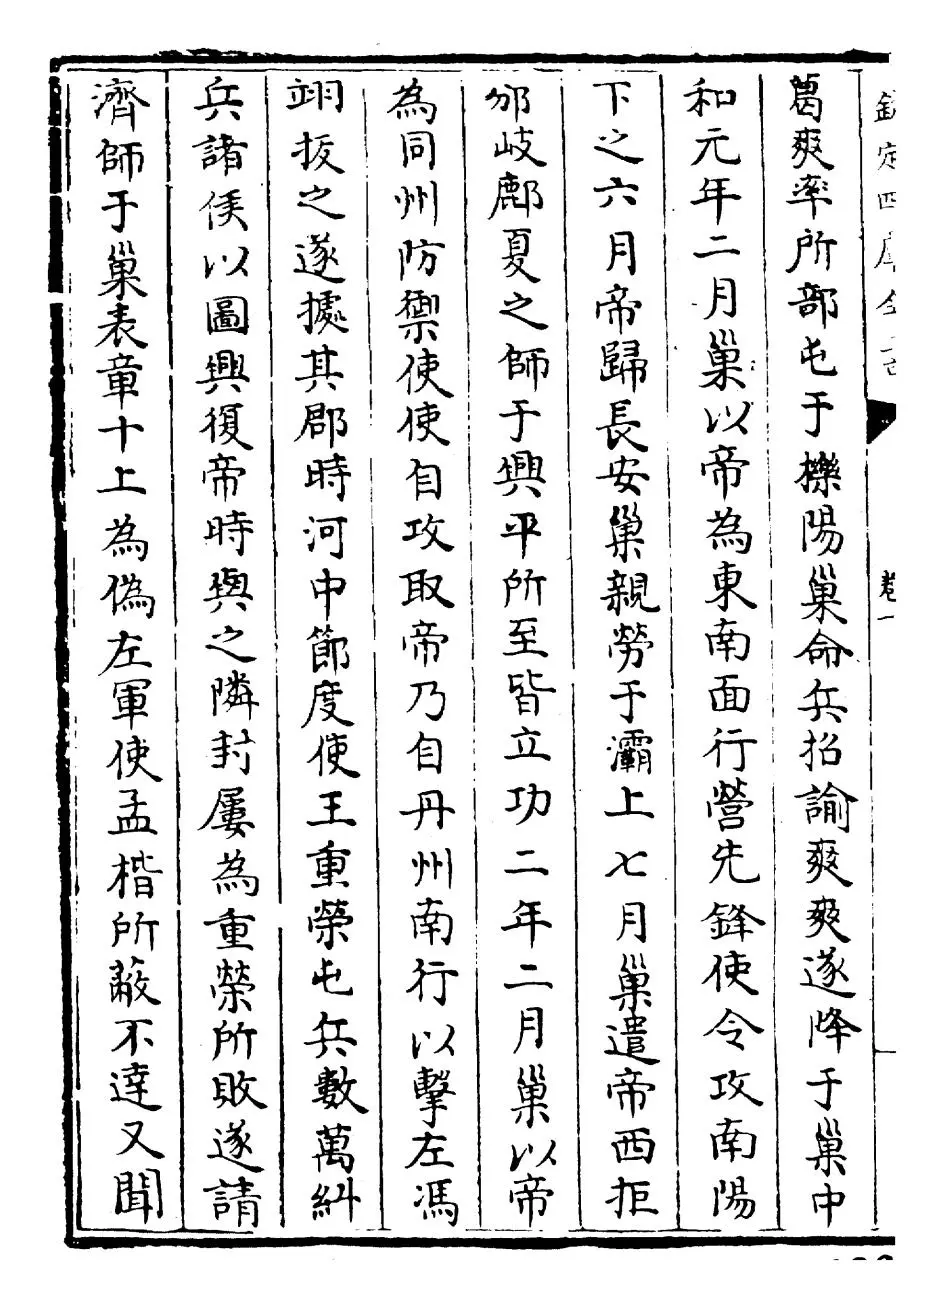 欽定四庫全書
卷一
葛爽率所部屯于櫟陽巢命兵招諭爽爽遂降于巢中
和元年二月巢以帝為東南面行營先鋒使令攻南陽
下之六月帝歸長安巢親勞于灞上七月巢遣帝西拒
邠岐鄜夏之師于興平所至皆立功二年二月巢以帝
為同州防禦使使自攻取帝乃自丹州南行以擊左馮
翊拔之遂據其郡時河中節度使王重榮屯兵數萬糾
兵諸侯以圖興復帝時與之隣封屢為重榮所敗遂請
濟師于巢表章十上為偽左軍使孟楷所蔽不達又聞